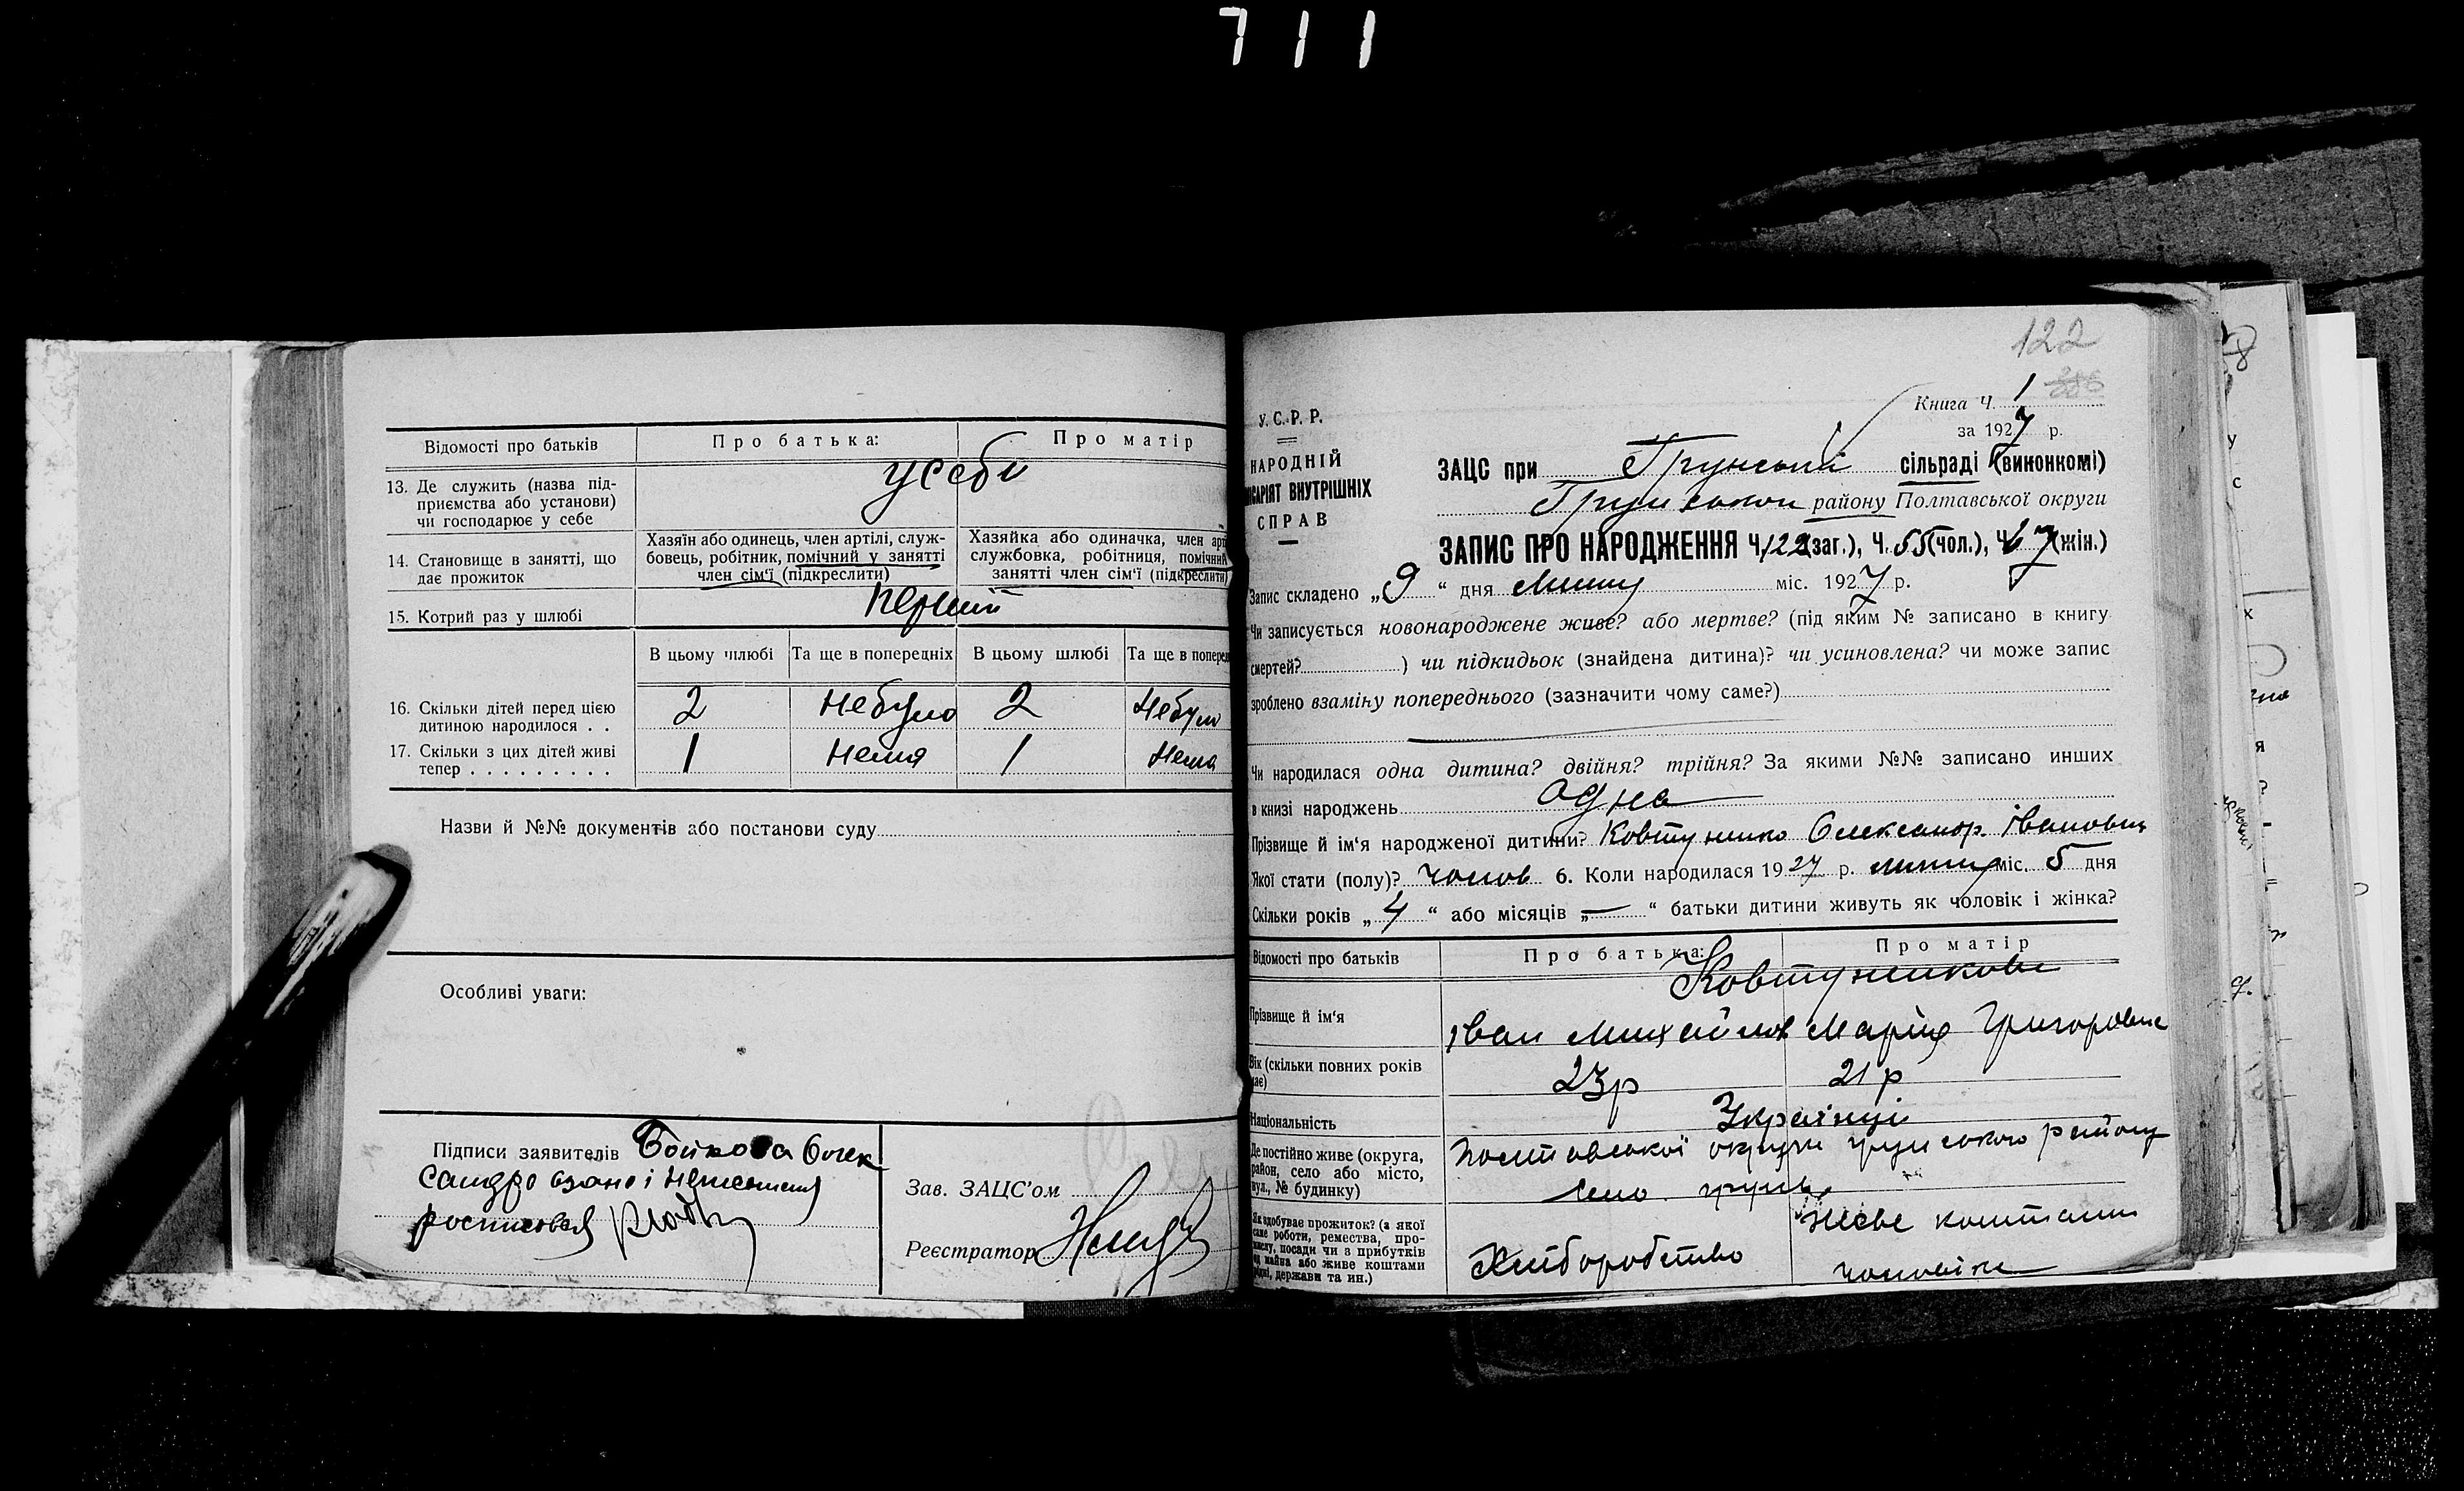 711
Відомості про батьків
Про батька:
Про матір
13. Де служить (назва під-
приємства або установи)
чи господарює у себе
у себи
14. Становище в занятті, що
дає прожиток
Хазяїн або одинець, член артілі, служ-
бовець, робітник, помічний у занятті
член сім'ї (підкреслити)
Хазяйка або одиначка, член арт
службовка, робітниця, помічний
занятті член сім'ї (підкреслити)
15. Котрий раз у шлюбі
перший
В цьому шлюбі
Та ще в попередніх
В цьому шлюбі
Та ще в поперед
16. Скільки дітей перед цією
дитиною народилося . .
2 небуло 2 небуло
17. Скільки з цих дітей живі
тепер . . . . . . . . .
1 нема 1 нема
Назви й №№ документів або постанови суду
Особливі уваги:
Підписи заявителів
неписьмения
Зав. ЗАЦС'ом
Реєстратор
122
Книга Ч. 1
за 1927 р.
У.С.Р.Р.
НАРОДНІЙ
САРІЯТ ВНУТРІШНІХ
СПРАВ
ЗАЦС при Грунській сільраді (виконкомі)
Грунського району Полтавської округи
ЗАПИС ПРО НАРОДЖЕННЯ Ч. 122 (заг.), Ч. 55 (чол.), Ч. 67 (жін.)
Запис складено „9“ дня липня міс. 1927 р.
Чи записується новонароджене живе? або мертве? (під яким № записано в книгу
смертей? ) чи підкидьок (знайдена дитина)? чи усиновлена? чи може запис
зроблено взаміну попереднього (зазначити чому саме?)
Чи народилася одна дитина? двійня? трійня? За якими №№ записано инших
в книзі народжень одна
Прізвище й ім'я народженої дитини? Ковтуненко Олександр. Іванович
Якої стати (полу)? чолов 6. Коли народилася 1927 р. липня міс. 5 дня
Скільки років „4“ або місяців „—“ батьки дитини живуть як чоловік і жінка?
Відомості про батьків
Про батька:
Про матір
Прізвище й ім'я
Іван Михайлов Марія Григоровна
Вік (скільки повних років
має)
23р 21р
Національність
Українці
Де постійно живе (округа,
район, село або місто,
вул., № будинку)
Полтавської округи грунського району
село грунь
Як здобуває прожиток? (з якої
саме роботи, ремества, про-
мислу, посади чи з прибутків
від майна або живе коштами
родні, держави та ин.)
Хліборобство
Живе коштами
чоловіка